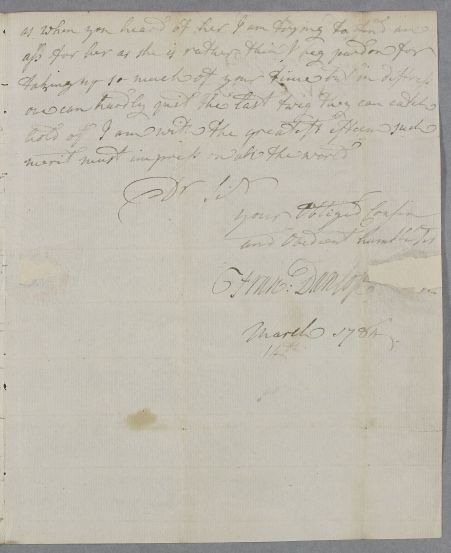 as when you heard of her I am trying to find an
ass for her as she is rather thin I beg pardon for
taking up so much of your time but in distress
one can hardly quit the last twig they can catch
hold off I am with the greatest esteem such
merit must impress on all the world
Dr Sir
your Obliged Cousin
and Obedient humble
Dunlop
March 1784
14th